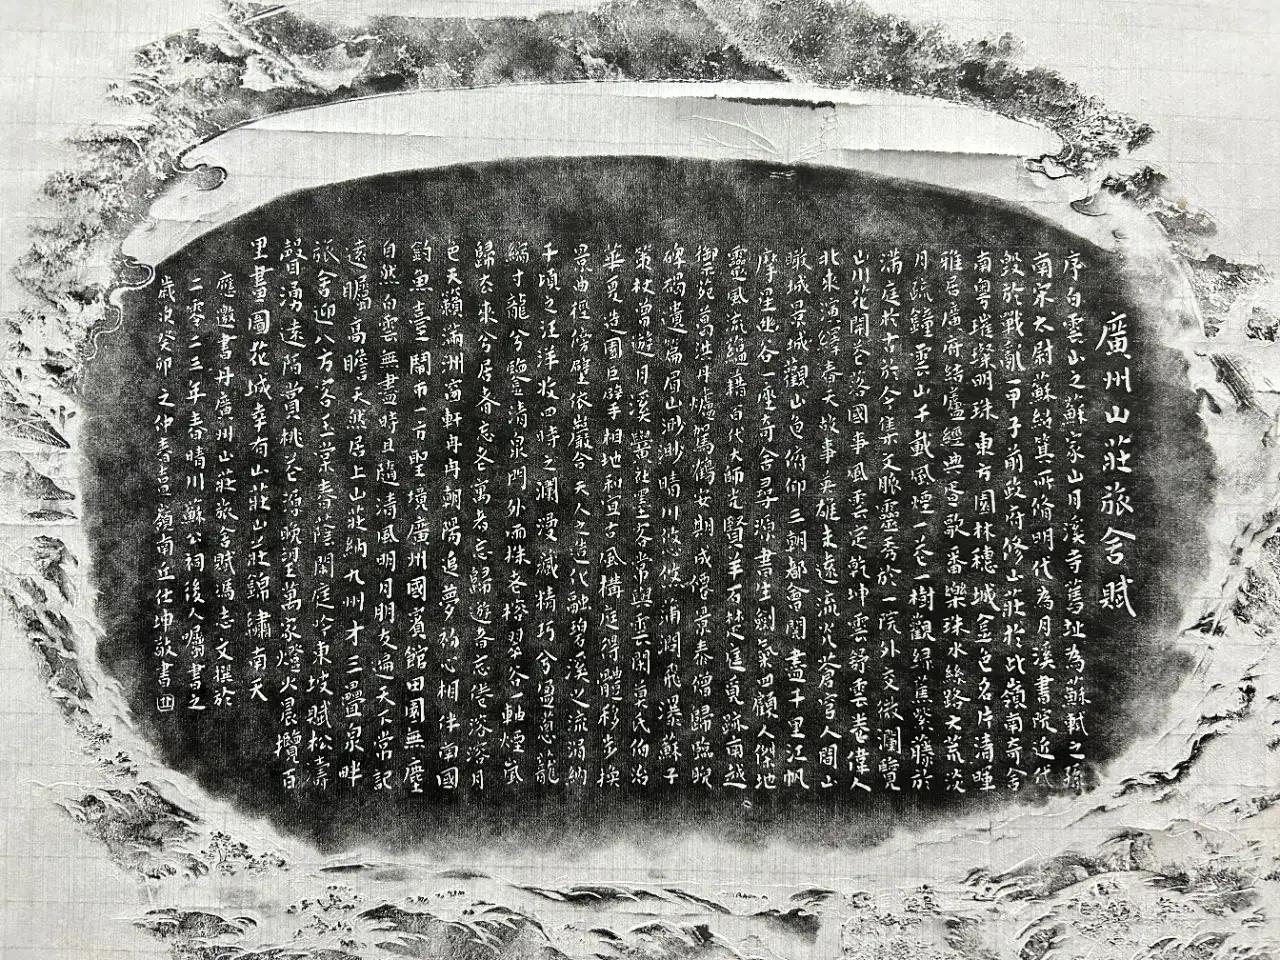 廣州山莊旅舍賦
序白雲山之蘇家山月溪寺舊址為蘇軾之孫
南宋太尉蘇紹箕所脩明代為月溪書院近代
毀於戰亂一甲子前政府修山莊於此嶺南奇舍
南粵璀璨明珠東方園林穗城金色名片清曈
雅居廣府結廬經典長歌番樂珠水絲路大荒淡
月疏鐘雲山千載風煙一花一樹觀綠蕉紫藤於
滿庭於古於今集文脈靈秀於一院外交微瀾覽
山川花開花落國事風雲定乾坤雲舒雲卷偉人
北來演繹春天故事英雄未遠流光蒼穹人間山
墩城景城觀山色俯仰三朝都會閱盡千里江帆
摩星坐谷一座奇舍尋源書生劍氣四顧人傑地
靈風流蘊藉百代大師先賢羊石楚庭覓跡南越
御苑葛洪丹爐駕鶴安期成僊景泰僧歸臨睨
碑碣遺篇眉山渺渺晴川悠悠蒲澗飛瀑蘇子
策杖曾遊月溪鷺社墨客常與雲閑莫氏伯治
華夏造園巨擘手相地和宜古風構庭得體移步換
景曲徑傍壁依巖合天人之造化融碧溪之流淌納
千頃之汪洋收四時之瀾漫減精巧兮盧怎龍
縮寸龍兮鹽清泉門外兩株老榕翠谷一軸煙嵐
歸去來兮居者忘老寓者忘歸遊者忘倦溶溶月
色天籟滿洲窗軒冉冉朝陽追夢初心相伴南國
釣魚臺鬧市一方聖境廣州國賓館田園無塵
自然白雲無盡時且隨清風明月朋友遍天下常記
遠矚高瞻天然居上山莊納九州才三疊泉畔
旅舍迎八方客玉棠春蔭閑庭吟東坡賦松濤
聲湧遠陌賞桃花源晚望萬家燈火晨攬百
里畫圖花城幸有山莊山莊錦繡南天
應邀書丹廣州山莊旅舍賦馮志文撰於
二零二三年春晴川蘇公祠後人囑書之
歲次癸卯之仲春嶺南丘仕坤敬書